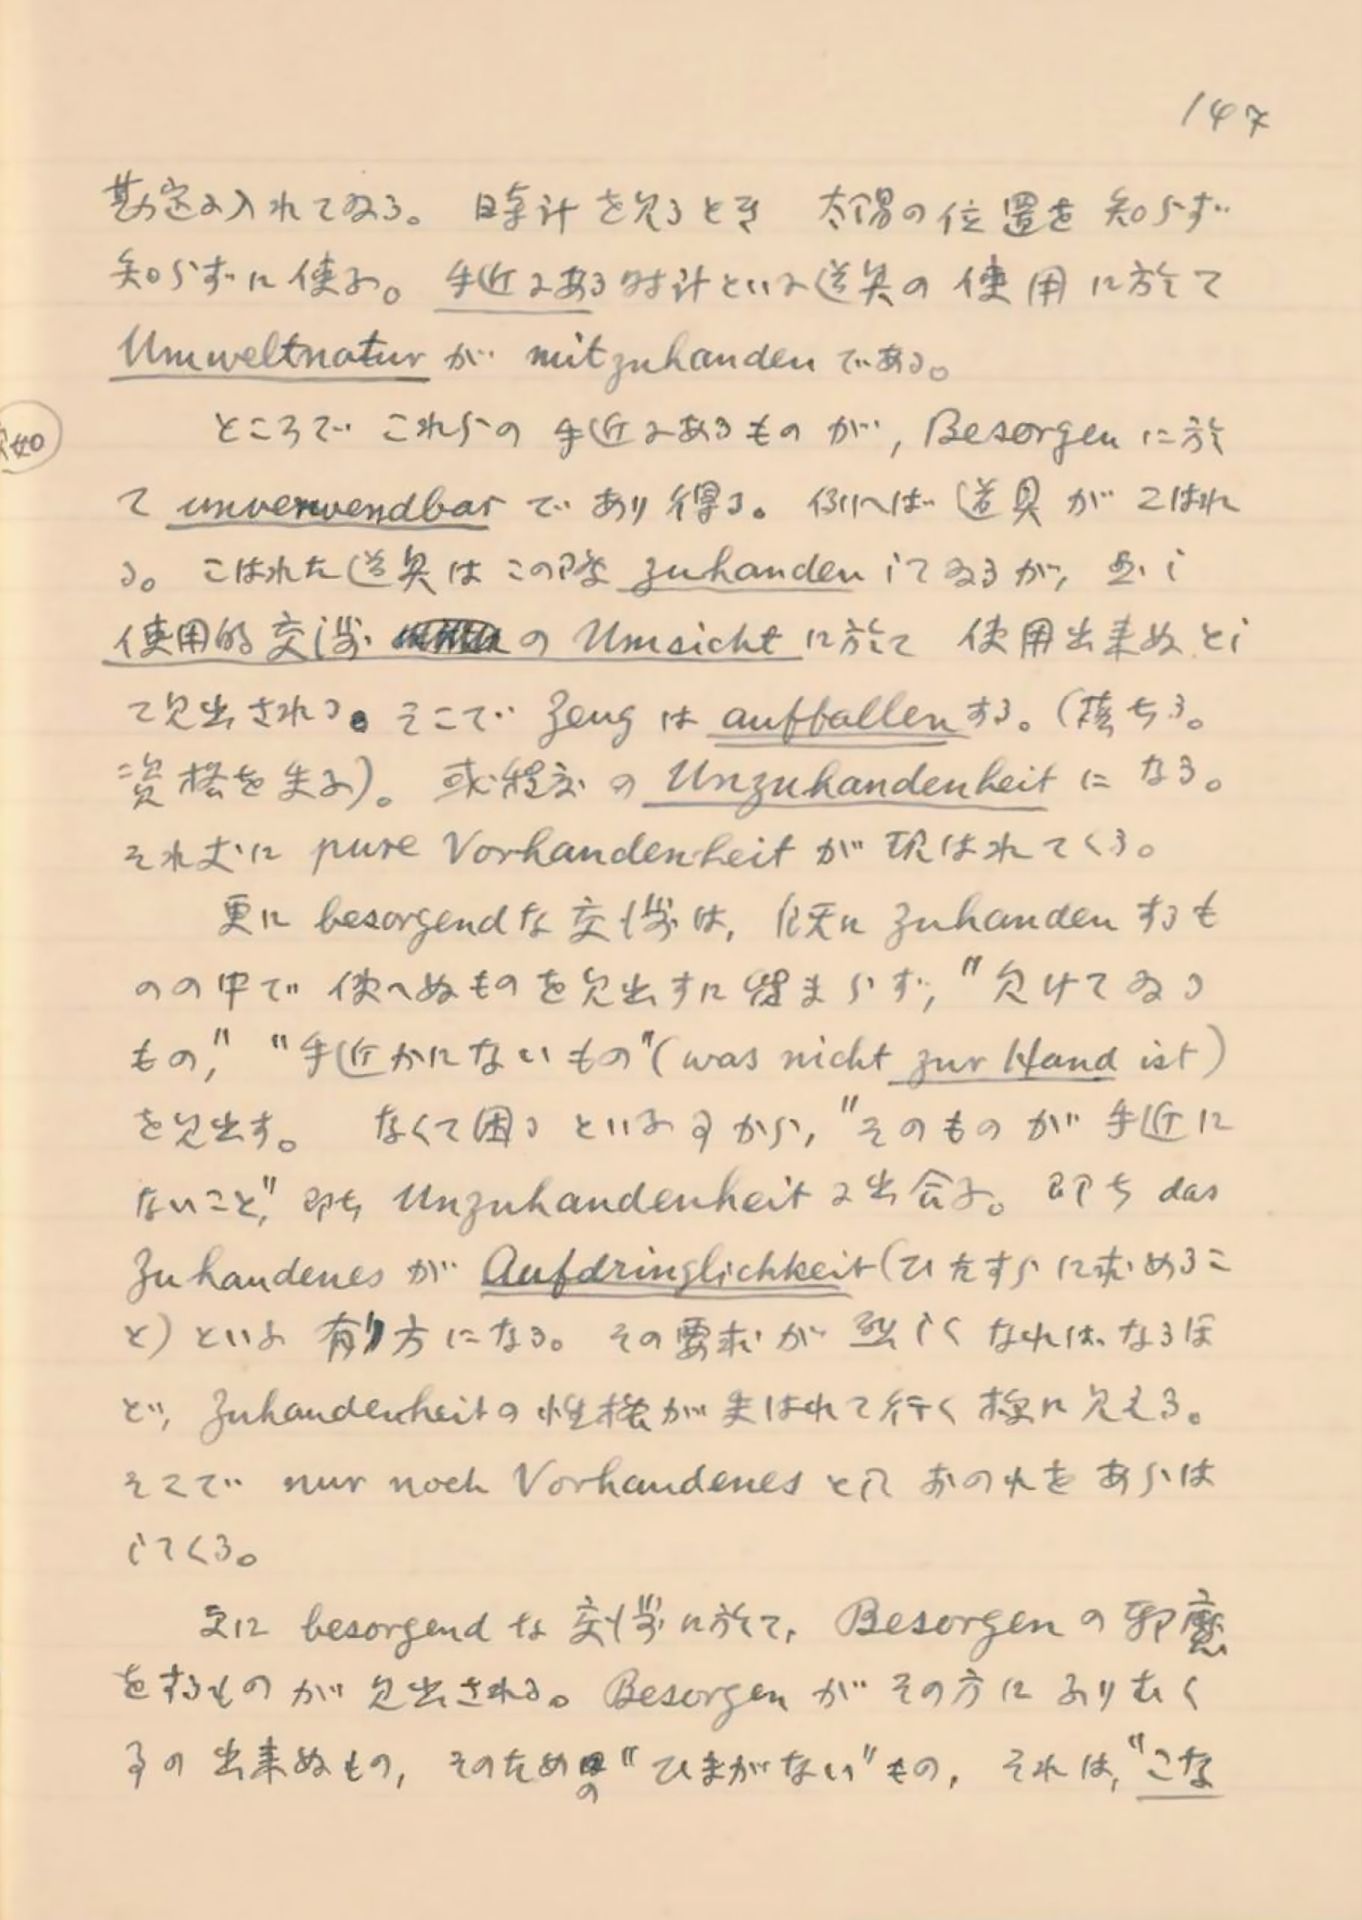 147
勘定に入れてゐる。 時計を見るとき 太陽の位置を 知らず
知らずに使ふ。 手近にある時計といふ道具の 使用に於て
Umweltnatur が mitzuhanden である。
ところで これらの 手近にあるものが, Besorgen に於
て unverwendbar で あり得る。 例へば 道具が こはれ
る。 こはれた道具は この際 zuhanden してゐるが, 
使用的交渉 の Umsicht に於て 使用出来ぬ とし
て見出される。そこで Zeug は auffallen する。(落ちる。
資格を失ふ)。 或程度の Unzuhandenheit に なる。
それ丈に pure Vorhandenheit が 現はれてくる。
更に besorgend な 交渉は, 既に zuhanden するも
のの中で 使へぬものを見出すに留まらず, "欠けてゐる
もの," "手近かにないもの" (was nicht zur Hand ist)
を見出す。 なくて困る といふ事から, "そのものが 手近に
ないこと," 即ち Unzuhandenheit に出会ふ。 即ち das
Zuhandenes が Aufdringlichkeit (ひたすらに求めるこ
と) といふ 有り方になる。 その要求が 烈しく なればなるほ
ど, Zuhandenheit の性格が失はれて行く様に見える。
そこで nur noch Vorhandenes として おのれを あらは
してくる。
更に besorgend な 交渉に於て, Besorgen の 邪魔
をするものが 見出される。 Besorgen が その方に ふりむく
事の 出来ぬもの, そのための "ひまがない" もの, それは, "こな